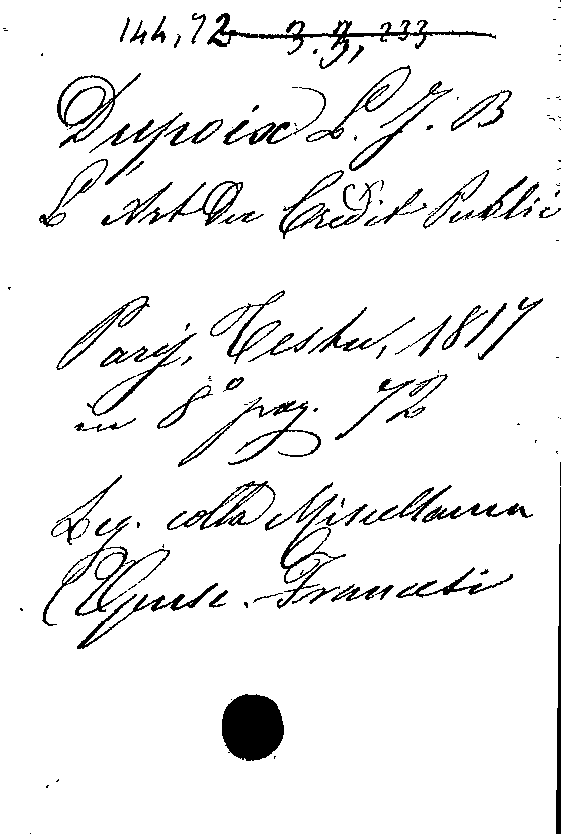 144,72 3.3,233
Dupoix L. J. B
L'Art Du Crédit Public
Parij, Testu, 1817
in 8° pag. 72
Leg. colla Miscellanea
Opusc. Francesi